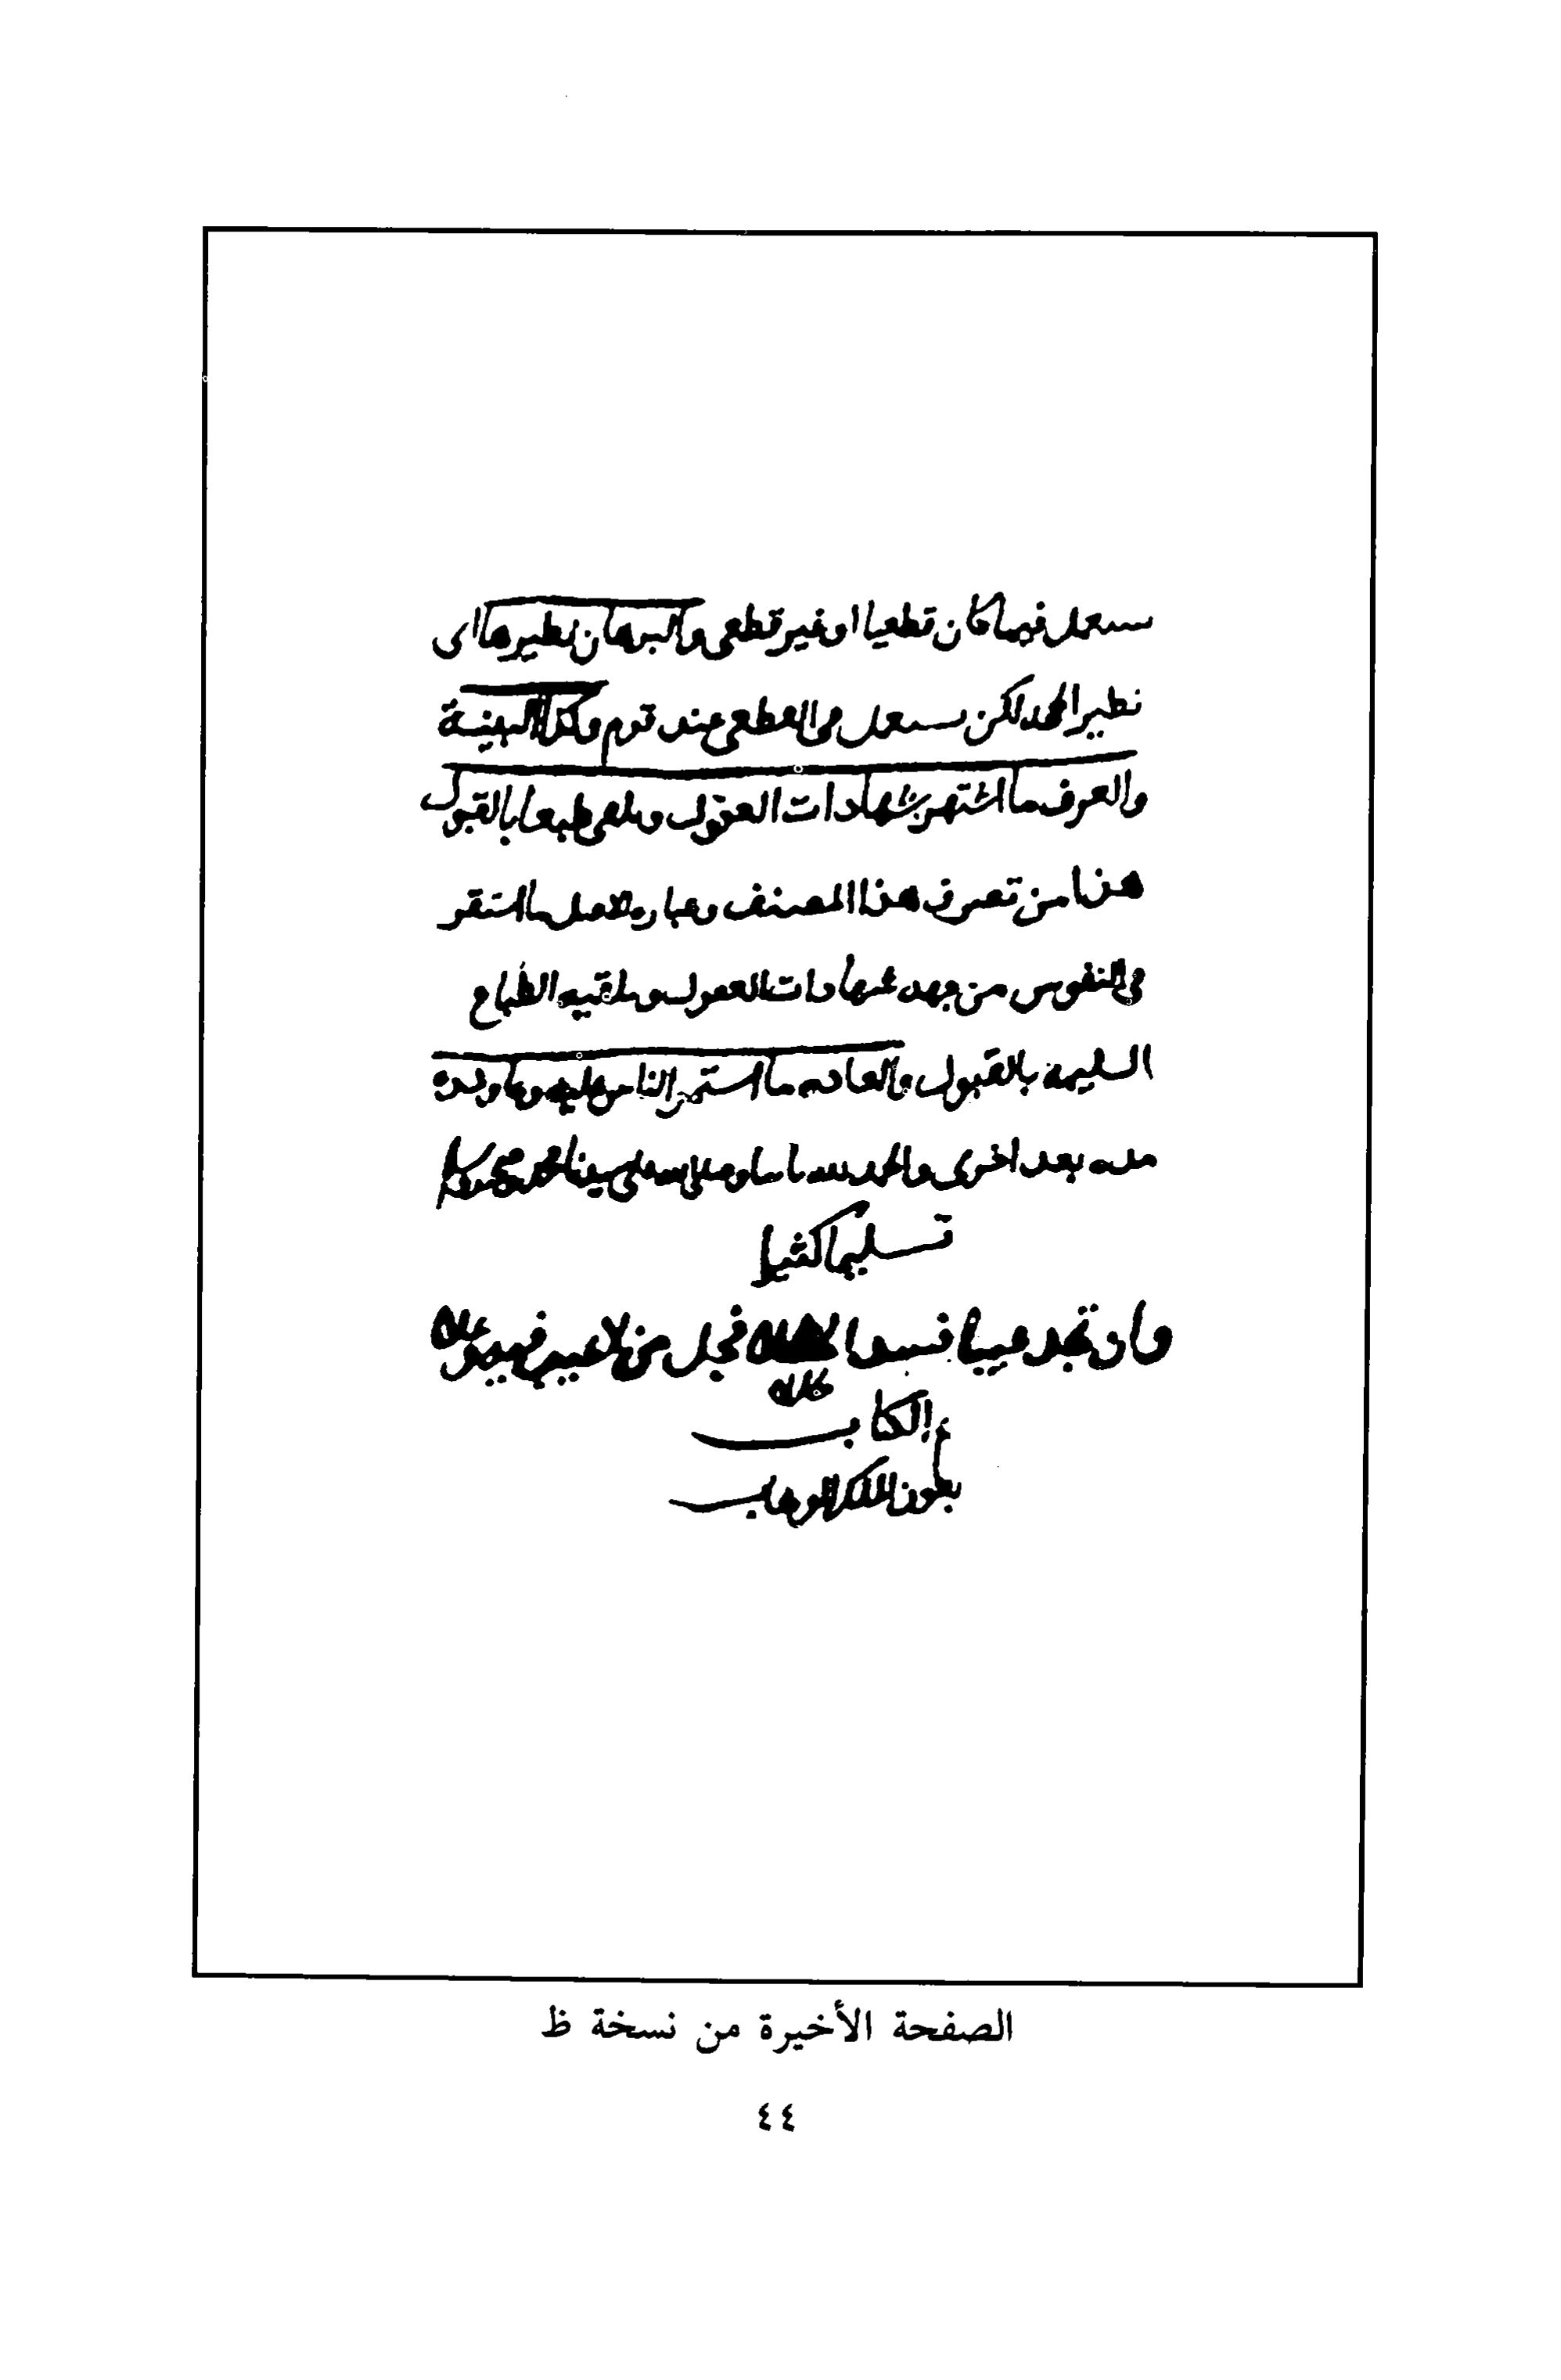 يستعمل فيما كان قطعيا او غير قطعي والبرهان نظيرها اى
نظير الحجه لكن يستعمل فى القطعي عند قوم وكذا البينة
والعرف ما اشتهر بشهادات العقول وتلقى طبعا بالقبول
هذا من تصرف هذا المصنف وعباره الاصل ما استقر
في النفوس من جهه شهادات العقول وتلقيه الطباع
السليمة بالقبول والعاده ما استمر الناس عليه وعاودوه
مره بعد اخرى والحمد لله وصلى الله على سيدنا محمد وسلم
تسليما كثيرا
وان تجد عيبا فسد الخللا فجل من لا عيب فيه وعلا
الكتاب
بعون الملك الوهاب
الصفحة الأخيرة من نسخة ظ
٤٤